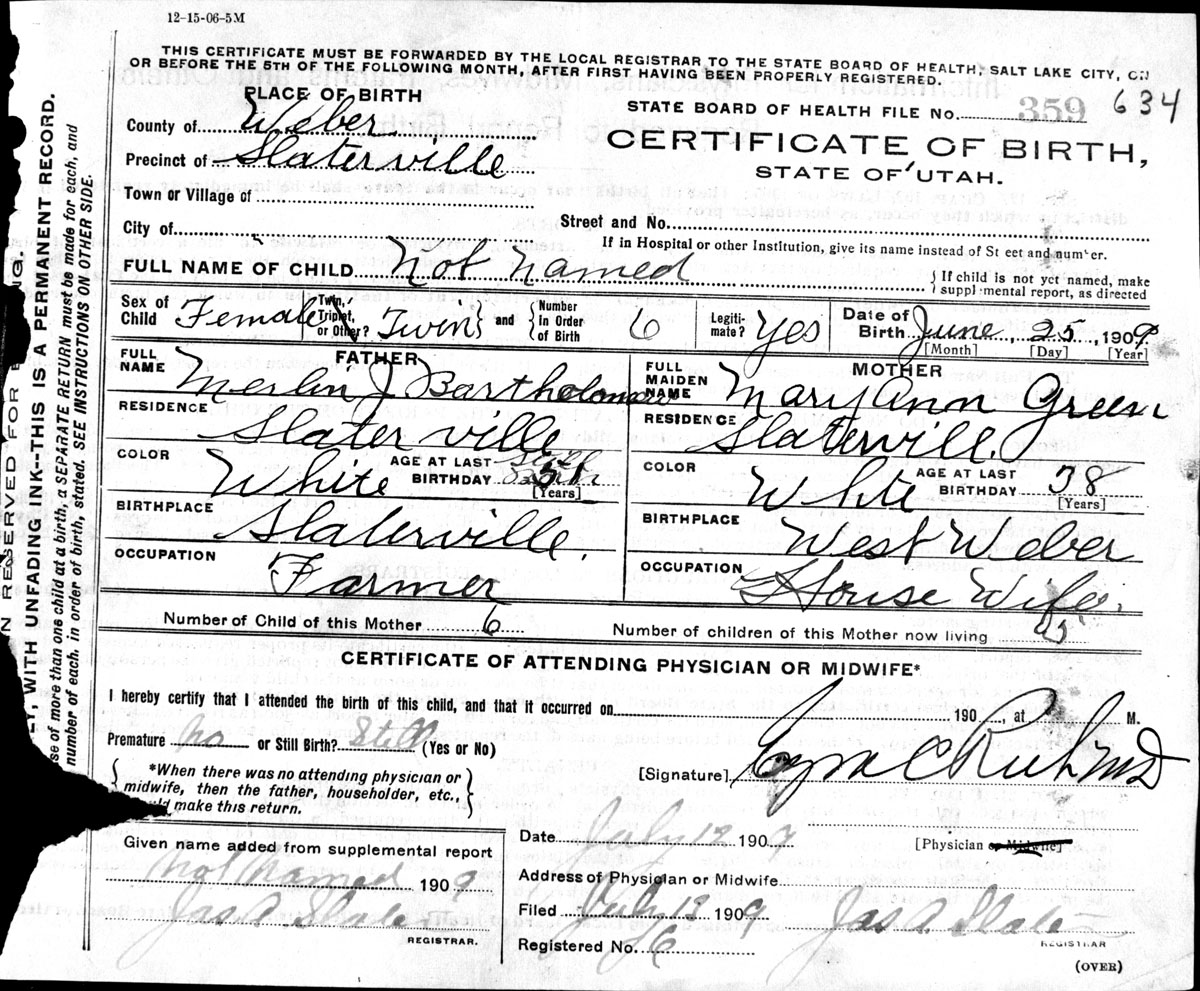 12-15-06-5M
THIS CERTIFICATE MUST BE FORWARDED BY THE LOCAL REGISTRAR TO THE STATE BOARD OF HEALTH, SALT LAKE CITY, ON
OR BEFORE THE 5TH OF THE FOLLOWING MONTH, AFTER FIRST HAVING BEEN PROPERLY REGISTERED.
PLACE OF BIRTH
STATE BOARD OF HEALTH FILE No. 359 634
County of Weber
CERTIFICATE OF BIRTH,
Precinct of Slaterville
STATE OF UTAH.
Town or Village of
Street and No.
City of
If in Hospital or other Institution, give its name instead of St eet and number.
FULL NAME OF CHILD Not Named
{ If child is not yet named, make
supplemental report, as directed
Sex of Child Female Twin, Triplet, or Other? Twin } and { Number in Order of Birth 6 Legiti-mate? Yes Date of Birth June 25, 1909
[Month] [Day] [Year]
FATHER
FULL NAME Merlin J Bartholomew
RESIDENCE Slaterville
COLOR White AGE AT LAST BIRTHDAY 31
[Years]
BIRTHPLACE Slaterville.
OCCUPATION Farmer
MOTHER
FULL MAIDEN NAME Mary Ann Green
RESIDENCE Slatervill
COLOR White AGE AT LAST BIRTHDAY 38
[Years]
BIRTHPLACE West Weber
OCCUPATION House Wife.
Number of Child of this Mother 6
Number of children of this Mother now living 5
CERTIFICATE OF ATTENDING PHYSICIAN OR MIDWIFE*
I hereby certify that I attended the birth of this child, and that it occurred on 190 , at M.
Premature No or Still Birth? Still (Yes or No)
{ *When there was no attending physician or
midwife, then the father, householder, etc., }
make this return.
[Signature] Ezra C Rich MD
Date July 12 1909 [Physician or Midwife]
Given name added from supplemental report
Not Named 1909
Jas A. Slater
REGISTRAR.
Address of Physician or Midwife
Filed July 12 1909 Jas A. Slater
REGISTRAR
Registered No. 6
(OVER)
N RESERVED FOR
LY, WITH UNFADING INK--THIS IS A PERMANENT RECORD.
se of more than one child at a birth, a SEPARATE RETURN must be made for each, and
number of each, in order of birth, stated. SEE INSTRUCTIONS ON OTHER SIDE.